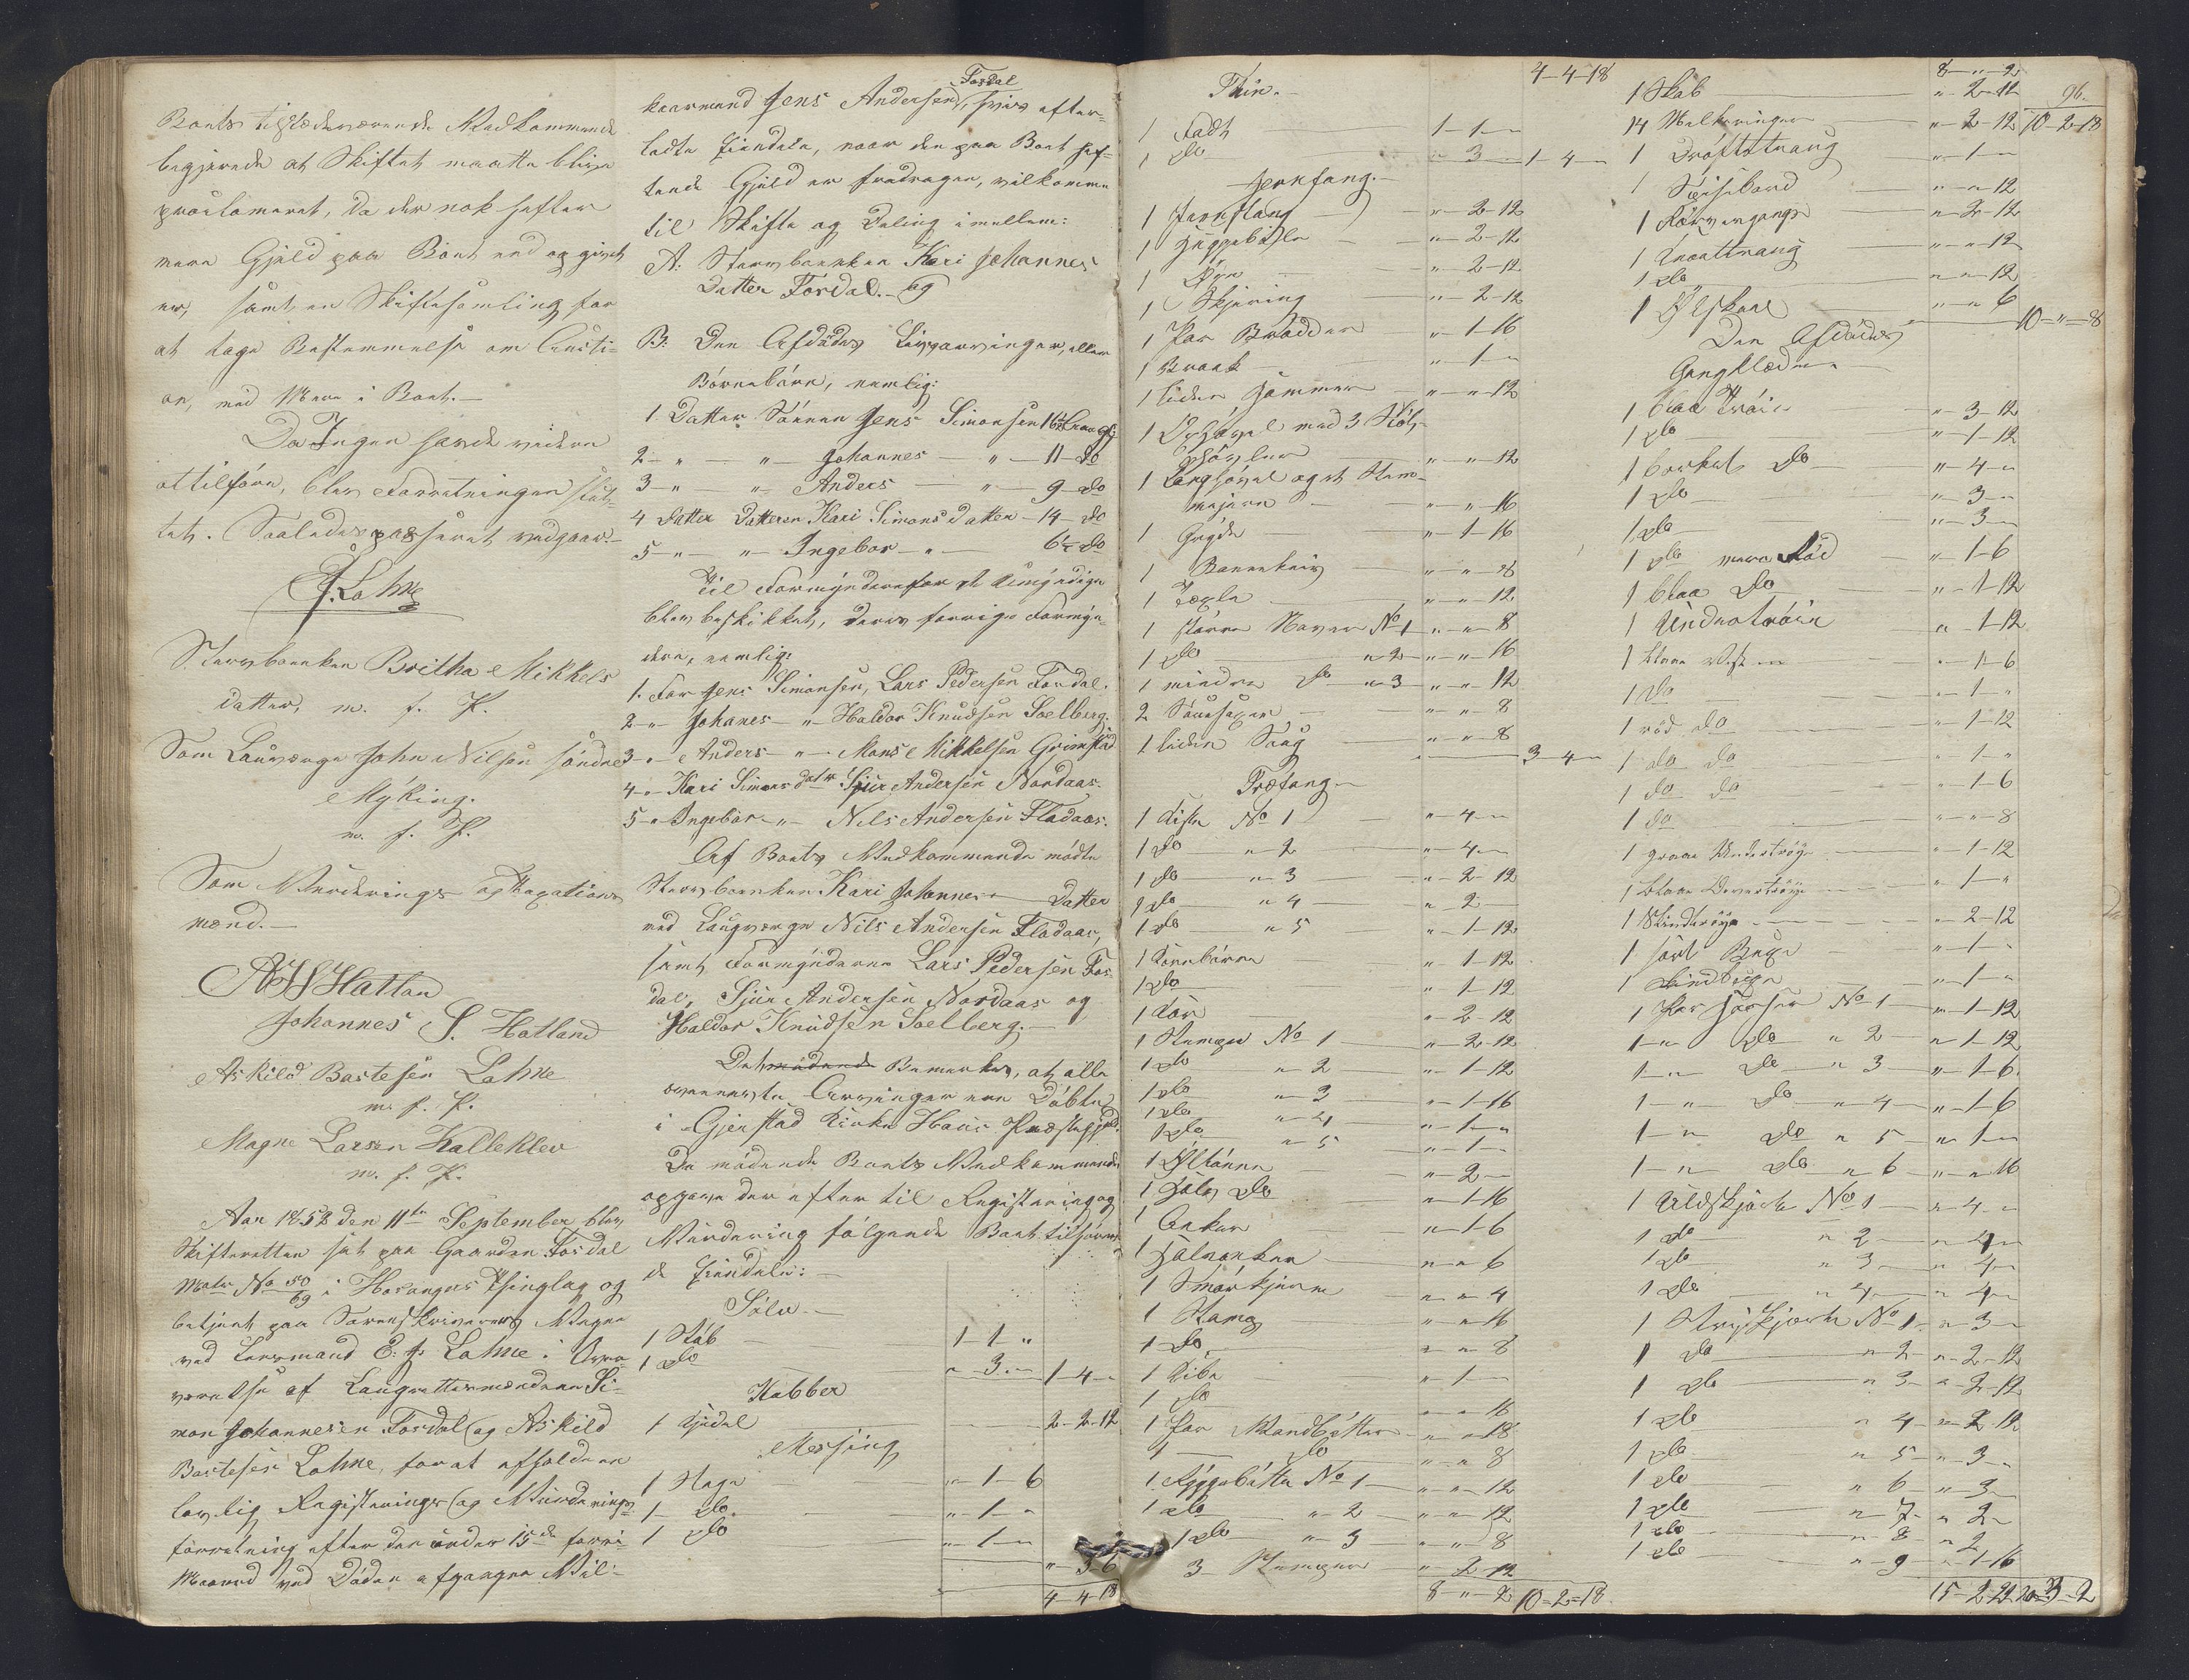 Boets tilstedeværende Medkommende
begjærede at Skiftet maatte blive
proclameret, da der nok hefter
mere Gjæld paa Boet end opgivet
er, samt en Skiftesamling for
at tage Bestemmelse om Aucti-
on, med Mere i Boet.
Da Ingen havde videre
at tilføre, blev Forretningen slut-
tet. Saaledes passeret vedgaaes.
J. Lahne
Stervboenken Britha Mikkels
datter, m. f. P.
Som Laugværge John Nilsen søndre
Myking.
m. f. P.
Som Vurderings og Taxations
mænd.
Hatland
Johannes S. Hatland
Askild Bastesen Lahne
m. f. P.
Magne Larsen Kalleklev
m. f. P.
Aar 1852 den 11te September blev
Skifteretten sat paa Gaarden Fosdal
Matr No 50/69 i Hosangers Thinglag og
betjent paa Sorenskriverens Vegne
ved Lensmand Lahne i Over-
værelse af Laugrettesmændene Si-
mon Johannesen Fosdal og Askild
Bastesen Lahne, for at afholde en
lovlig Registrerings og Vurderings
forretning efter den under 15de forri
Maaned ved Døden afgangne Vil-
kaarmand Jens Andersen Fosdal, hvis efter-
ladte Eiendele, naar den paa Boet hef-
tende Gjæld er fradragen, vilkomme
til Skifte og Deling imellem:
A: Stervboenken Kari Johannes
Datter Fosdal. og
B: Den Afdødes Livsarvinger, eller
Børnebørn, nemlig:
1. Datter Sønnen Jens Simonsen 16½ Aar gl.
2 - " - " - Johannes - " - 11 - do
3 - " - " - Anders - " - 9 - do
4 Datter Datteren Kari Simons datter - 14 - do
5 - " - " - Ingebor - " - 6½ do
Til Formyndere for de Umyndige
blev beskikket, deres forrige Formyn-
dere, nemlig:
1. For Jens Simonsen, Lars Pedersen Fosdal.
2 - " Johanes - " - Haldor Knudsen Soelberg.
3 - " Anders - " - Mons Mikkelsen Grimstad
4 - " Kari Simons datr Sjur Andersen Nordaas.
5 - " Ingebor - " - Nils Andersen Fladaas.
Af Boets Medkommende mødte
Stervboenken Kari Johannes Datter
med Laugværge Nils Andersen Fladaas,
samt Formynderne Lars Pedersen Fos-
dal, Sjur Andersen Nordaas og
Haldor Knudsen Soelberg.
Det bemærkes, at alle
ovennævnte Arvinger ere Døbte
i Gjerstad Kirke Haus Præstegjeld.
De mødende Boets Medkommende
opgave derefter til Registrering og
Vurdering følgende Boet tilhøren-
de Eiendele:
Sølv
1 Støb 1 - 1 "
1 do " - 3 - " 1 - 4 - "
Kobber
1 Kjedel 2 - 2 - 12
Messing
1 Stage " - 1 - 6
1 do " - 1 - "
1 do " - 1 - "
" - 3 - 6
4 - 4 - 18
Thin. 4 - 4 - 18
1 Fadt 1 - 1 - "
1 do " - 3 - " 1 - 4 - "
Jernfang.
1 Jernstang " - 2 - 12
1 " - 2 - 12
1 " - 2 - 12
1 Skjering " - 2 - 12
1 Par Brodder " - 1 - 16
1 " - 1 - "
1 liden Hammer " - " - 12
1 med 3
" - " - 12
1 Langhøvel og et
" - " - 16
1 " - 1 - 16
1 " - " - 8
1 Texle " - " - 12
1 større Naver No 1 " - " - 8
1 do " 2 - " - " - 16
1 mindre do " 3 " - " - 12
2 Sauesaxer " - " - 8
1 liden Saug " - " - 8
3 - 4 - "
Træfang.
1 Kiste No 1 " - 4 - "
1 do " 2 " - 4 - "
1 do " 3 " - 2 - 12
1 do " 4 " - 2 -
1 do " 5 " - 1 - 12
1 Kornbørre " - 1 - 12
1 do " - 1 - 12
1 Kar " - 2 - 12
1 No 1 " - 2 - 12
1 do " 2 " - 1 - 12
1 do " 3 " - 1 - 16
1 do " 4 " - 1 - "
1 do " 5 " - 1 -
1 Øltønne " - 2 -
1 halv do " - 1 - 16
1 Anker " - 1 - 6
1 Halvanker " - " 6
1 Smørkjerne " - " 4
1 Stamp " - " 16
1 do " - " 8
1 " - 1 -
1 do " - " 16
1 Par Vandbøtter " - " 18
1 do " - " 8
1 No 1 " - " 12
1 do " 2 " - " 12
1 do " 3 " - " 8
3 " - 2 - 12
8 - " - 2 10 - 2 - 18
96.
8 - " - 2
1 Skab " - 2 - 16
14 Melkeringer " - 2 - 12 10 - 2 - 18
1 Drøftetraug " - 1 - "
1 " - " 12
1 " - 2 - 12
1 " - " - 12
1 do " - " 12
1 Ølskaal " - " 6
10 - " - 8
Den Afdødes
Gangklæder
1 blaa Trøie " - 3 - 12
1 do " - 1 - 12
1 barket do " - 4 - "
1 do " - 3 - "
1 do " - 3 - "
1 do " - 1 - 6
1 blaa do " - 1 - 12
1 Undertrøie " - 1 - 12
1 blaae Vest " - 1 - 6
1 do " - 1 - "
1 rød do " - 1 - 12
1 do do " - 1 - "
1 do do " - 1 - 6
1 do " - " - 8
1 graae Undertrøye " - 1 - 12
1 blaae Overtrøye " - 1 - "
1 Skindtrøye " - 2 - 12
1 sort Buxe " - 1 - "
1 Skindbuxe " - 1 - "
1 Par Hoser No 1 " - 1 - 12
1 - " do " 2 " - 1 - 12
1 - " do " 3 " - 1 - 6
1 - " do " 4 " - 1 - 6
1 - " do " 5 " - 1 - "
1 - " do " 6 " - " 16
1 Uldskjorte No 1 " - 4 - "
1 do " 2 " - 4 - "
1 do " 3 " - 4 -
1 do " 4 " - 4 -
1 Stryskjorte No 1 " - 3 -
1 do " 2 " - 2 - 12
1 do " 3 " - 2 - 12
1 do " 4 " - 2 - 12
1 do " 5 " - 3 -
1 do " 6 " - 3 -
1 do " 7 " - 2 -
1 do " 8 " - 2
1 do " 9 " - 1 - 16